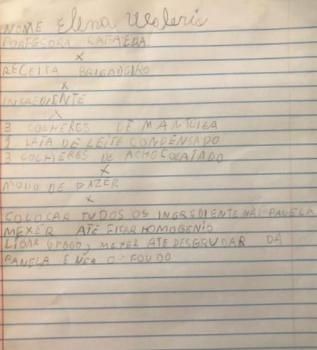 NOME Elena Valeria
PORFESORA RAFAELA
X
RECEITA BRIGADEIRO
X
INGREDIENTE
X
3 COLHERES DE MANTEIGA
1 LATA DE LEITE CONDENSADO
3 COLHERES DE ACHOCOLATADO
X
MODO DE FAZER
X
COLOCAR TUDOS OS INGREDIENTE NA PANELA
MEXER ATÉ FICAR HOMOGENIO
LIGAR O FOGO, MEXER ATÉ DESGRUDAR DA
PANELA E VER O FOUDO